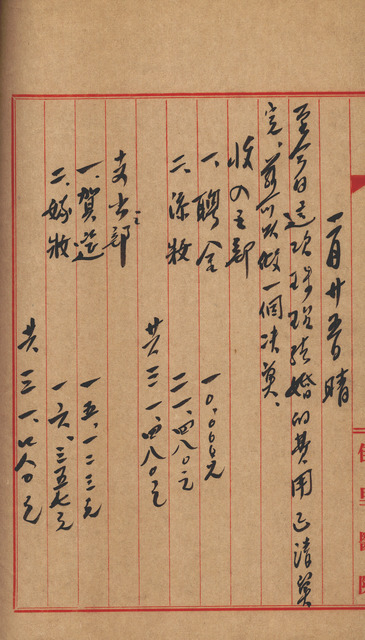 一月廿五日晴
至今日這次結婚的費用已清算
完、茲可以做一個决算、
收入之部
一、聘金 一〇、〇〇〇元
二、添妝 二一、四八〇元
共 三一、四八〇元
支出之部
一、賀筵 一五、一二三元
二、嫁妝 一六、三五七元
共 三一、四八〇元
佳里醫院